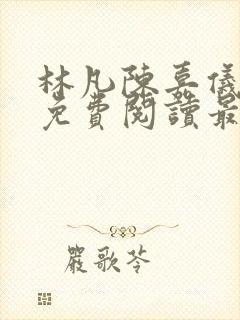 林凡陳嘉儀
免費閱讀最
嚴歌苓